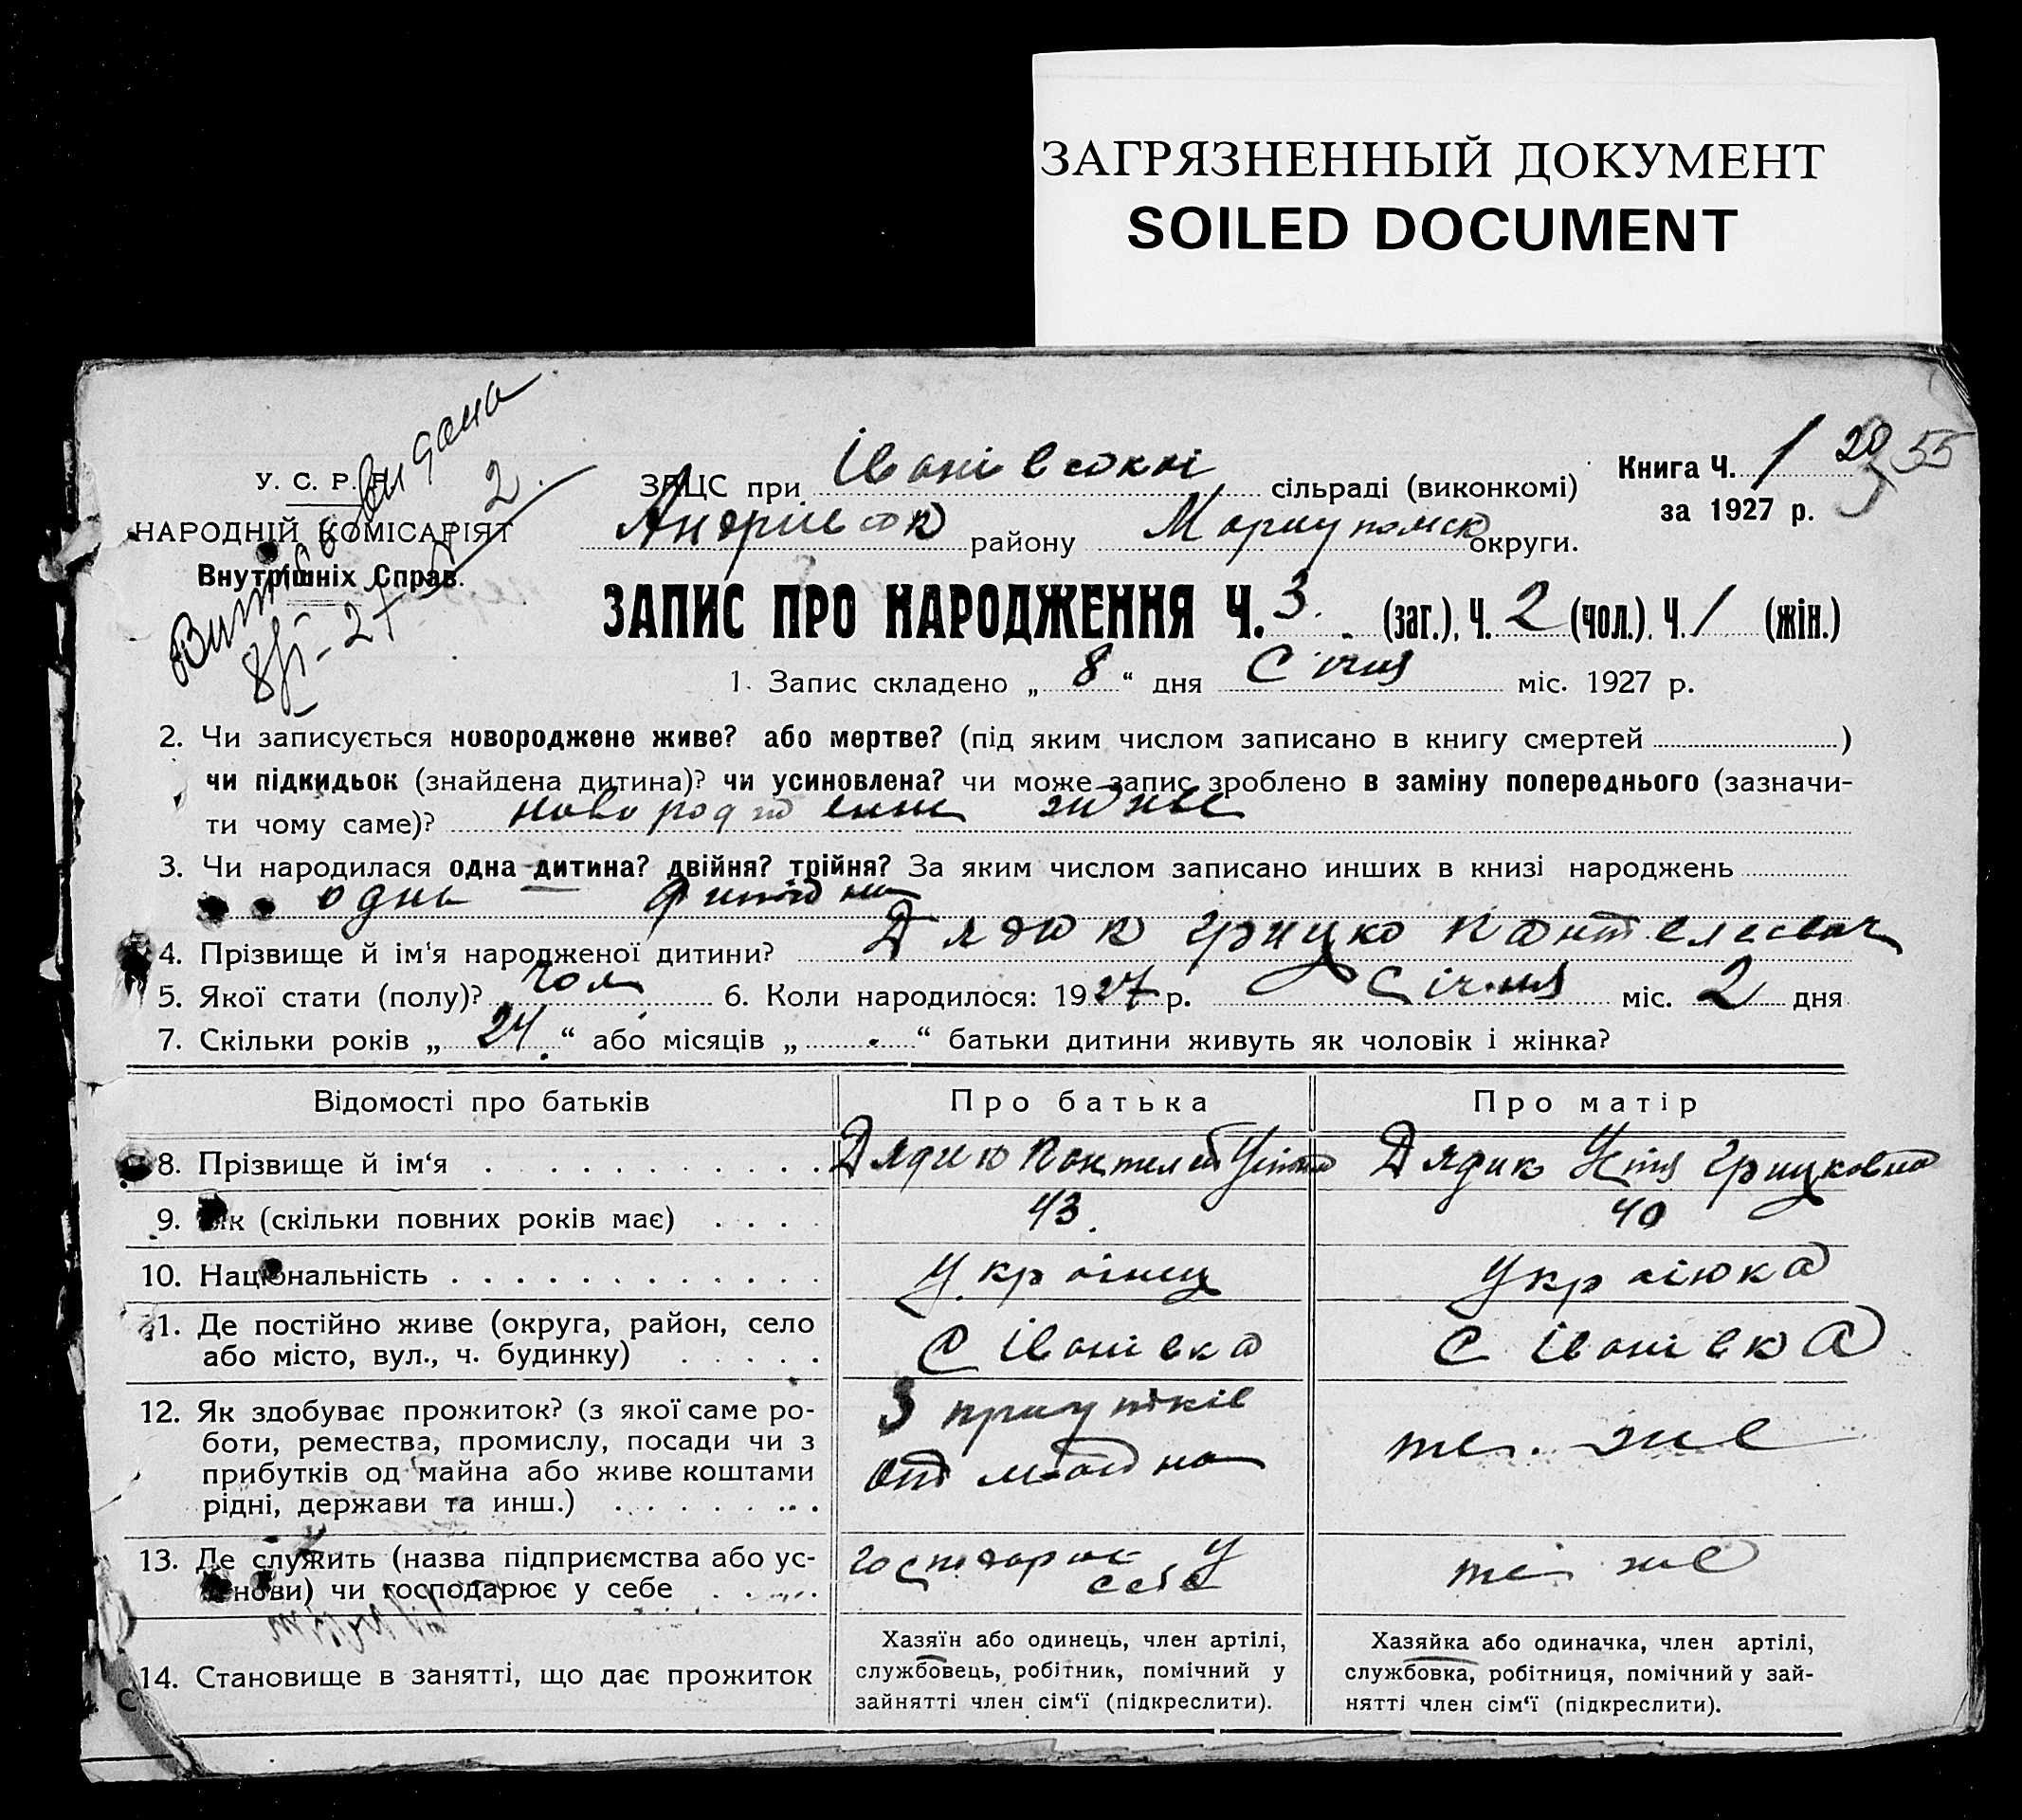 ЗАГРЯЗНЕННЫЙ ДОКУМЕНТ
SOILED DOCUMENT
Витяг видана
8/І-27 2.
У. С. Р. Р.
НАРОДНІЙ КОМІСАРІЯТ
Внутрішніх Справ.
ЗАЦС при Іванівській сільраді (виконкомі)
Андріївск району Мариупольск округи.
Книга Ч. 1 20 55
за 1927 р.
ЗАПИС ПРО НАРОДЖЕННЯ Ч. 3. (заг.), Ч. 2 (чол.). Ч. 1 (жін.)
1. Запис складено „ 8 “ дня Січня міс. 1927 р.
2. Чи записується новороджене живе? або мертве? (під яким числом записано в книгу смертей )
чи підкидьок (знайдена дитина)? чи усиновлена? чи може запис зроблено в заміну попереднього (зазначи-
ти чому саме)? живе
3. Чи народилася одна дитина? двійня? трійня? За яким числом записано инших в книзі народжень
одна дитина
4. Прізвище й ім‘я народженої дитини? Дядик Грицко Пантелеевич
5. Якої стати (полу)? чол 6. Коли народилося: 1927 р. Січня міс. 2 дня
7. Скільки років „ 24 “ або місяців „ “ батьки дитини живуть як чоловік і жінка?
Відомості про батьків Про батька Про матір
8. Прізвище й ім‘я Дядик Пантелей Дядик Устя Грицковна
9. Вік (скільки повних років має) 43. 40
10. Національність Украінец Украінка
11. Де постійно живе (округа, район, село
або місто, вул., ч. будинку) С Іванівка С Іванівка
12. Як здобуває прожиток? (з якої саме ро-
боти, ремества, промислу, посади чи з
прибутків од майна або живе коштами
рідні, держави та инш.) З прибутків
от майна те же
13. Де служить (назва підприємства або ус-
танови) чи господарює у себе господарює у
себе те же
14. Становище в занятті, що дає прожиток
Хазяїн або одинець, член артілі,
службовець, робітник, помічний у
зайнятті член сім‘ї (підкреслити).
Хазяйка або одиначка, член артілі,
службовка, робітниця, помічний у зай-
нятті член сім‘ї (підкреслити).